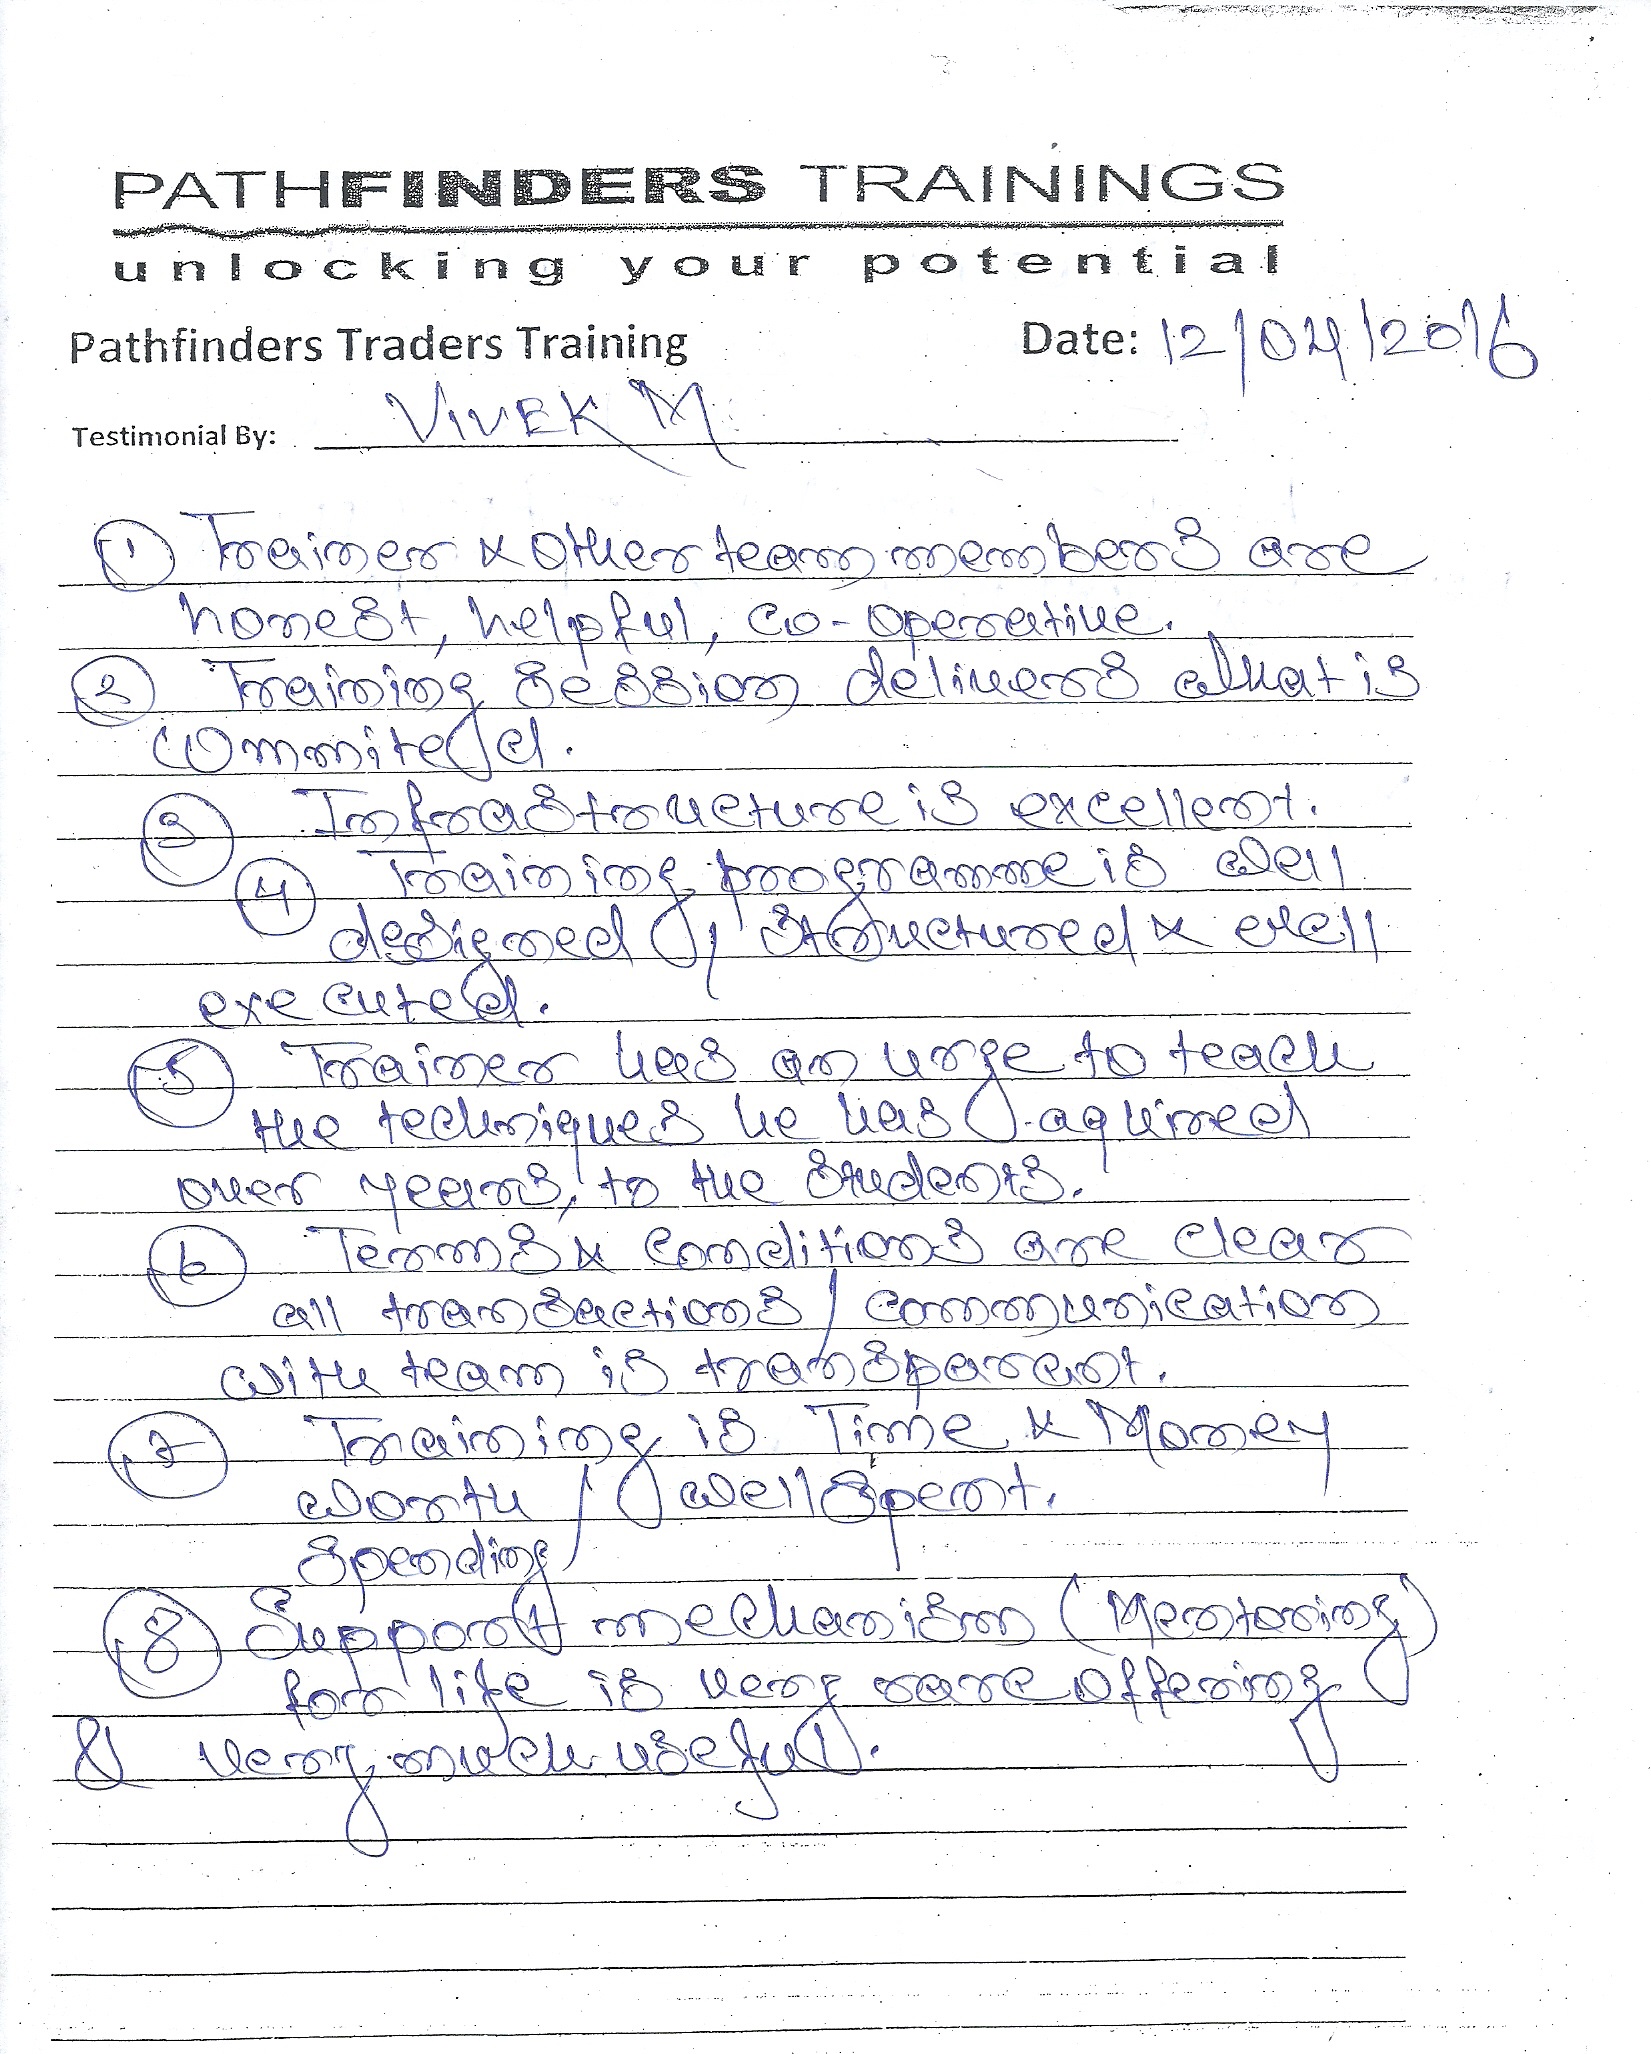 PATHFINDERS TRAININGS
unlocking your potential
Pathfinders Traders Training Date: 12/04/2016
Testimonial By: VIVEK M
1 Trainer & other team members are
honest, helpful, co-operative.
2 Training session delivers what is
commited.
3 Infrastructure is excellent.
4 Training programme is well
designed, structured & well
executed.
5 Trainer has an urge to teach
the techniques he has aquired
over years, to the students.
6 Terms & Conditions are clear
all transactions / communication
with team is transparent.
7 Training is Time & Money
worth / well spent.
spending
8 Support mechanism (Mentoring)
for life is very rare offering
& very much useful.